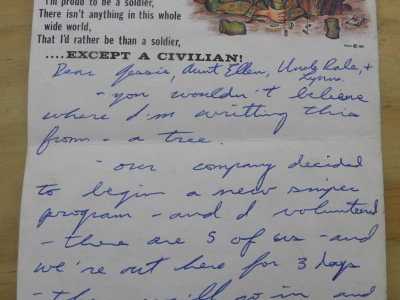 I'm proud to be a soldier,
There isn't anything in this whole
wide world,
That I'd rather be than a soldier,
....EXCEPT A CIVILIAN!
Dear Jessie, Aunt Ellen, Uncle Dale, +
Lynne.
- you wouldn't believe
where I'm writting this
from - a tree.
- our company decided
to begin a new sniper
program - and I volunteerd
- there are 5 of us - and
we're out here for 3 days
in and